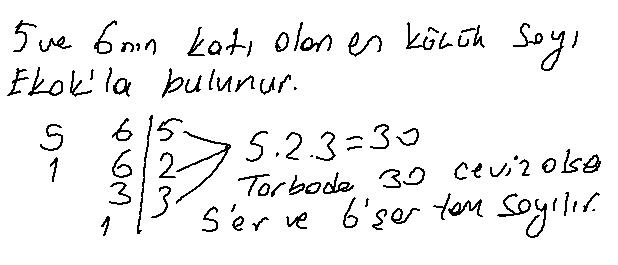 5 ve 6 nın katı olan en küçük sayı
Ekok'la bulunur.
5 6 | 5
1 6 | 2 5.2.3=30
3 | 3 Torbada 30 ceviz olsa
1 | 5'er ve 6'şar tam sayılır.